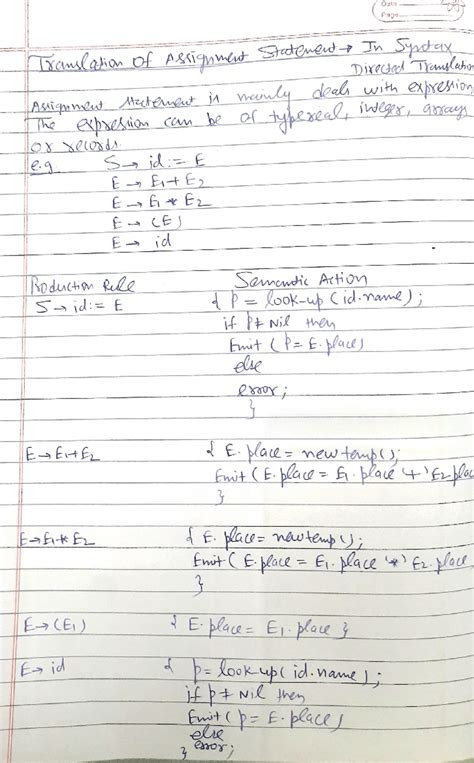 Date
Page
Translation of Assignment Statement → In Syntax
Directed Translation
Assignment statement is mainly deals with expression
The expression can be of type real, integer, arrays
or records.
e.g. S → id := E
E → E1 + E2
E → E1 * E2
E → (E)
E → id
Production Rule Semantic Action
S → id := E { P = look-up (id.name);
if P ≠ Nil then
Emit (P = E.place)
else
error;
}
E → E1+E2 { E.place = newtemp();
Emit (E.place = E1.place '+' E2.plac
}
E → E1 * E2 { E.place = newtemp();
Emit (E.place = E1.place '*' E2.place
}
E → (E1) { E.place = E1.place }
E → id { p = look-up (id.name);
if p ≠ Nil then
Emit (p = E.place)
else
} error;